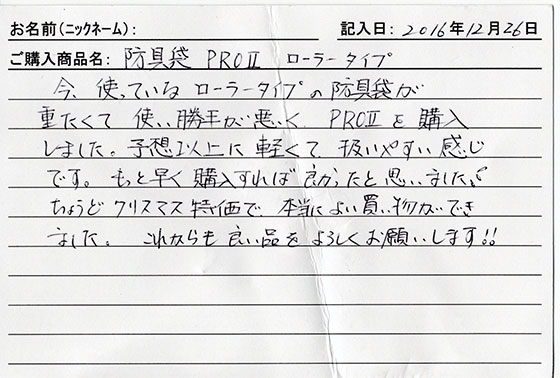 お名前(ニックネーム): 記入日: 2016年12月26日
ご購入商品名: 防具袋 PROⅡ ローラータイプ
今、使っているローラータイプの防具袋が
重たくて使い勝手が悪く、PROⅡを購入
しました。予想以上に軽くて扱いやすい感じ
です。もっと早く購入すれば良かったと思いました。
ちょうどクリスマス特価で、本当によい買い物ができ
ました。これからも良い品をよろしくお願いします!!